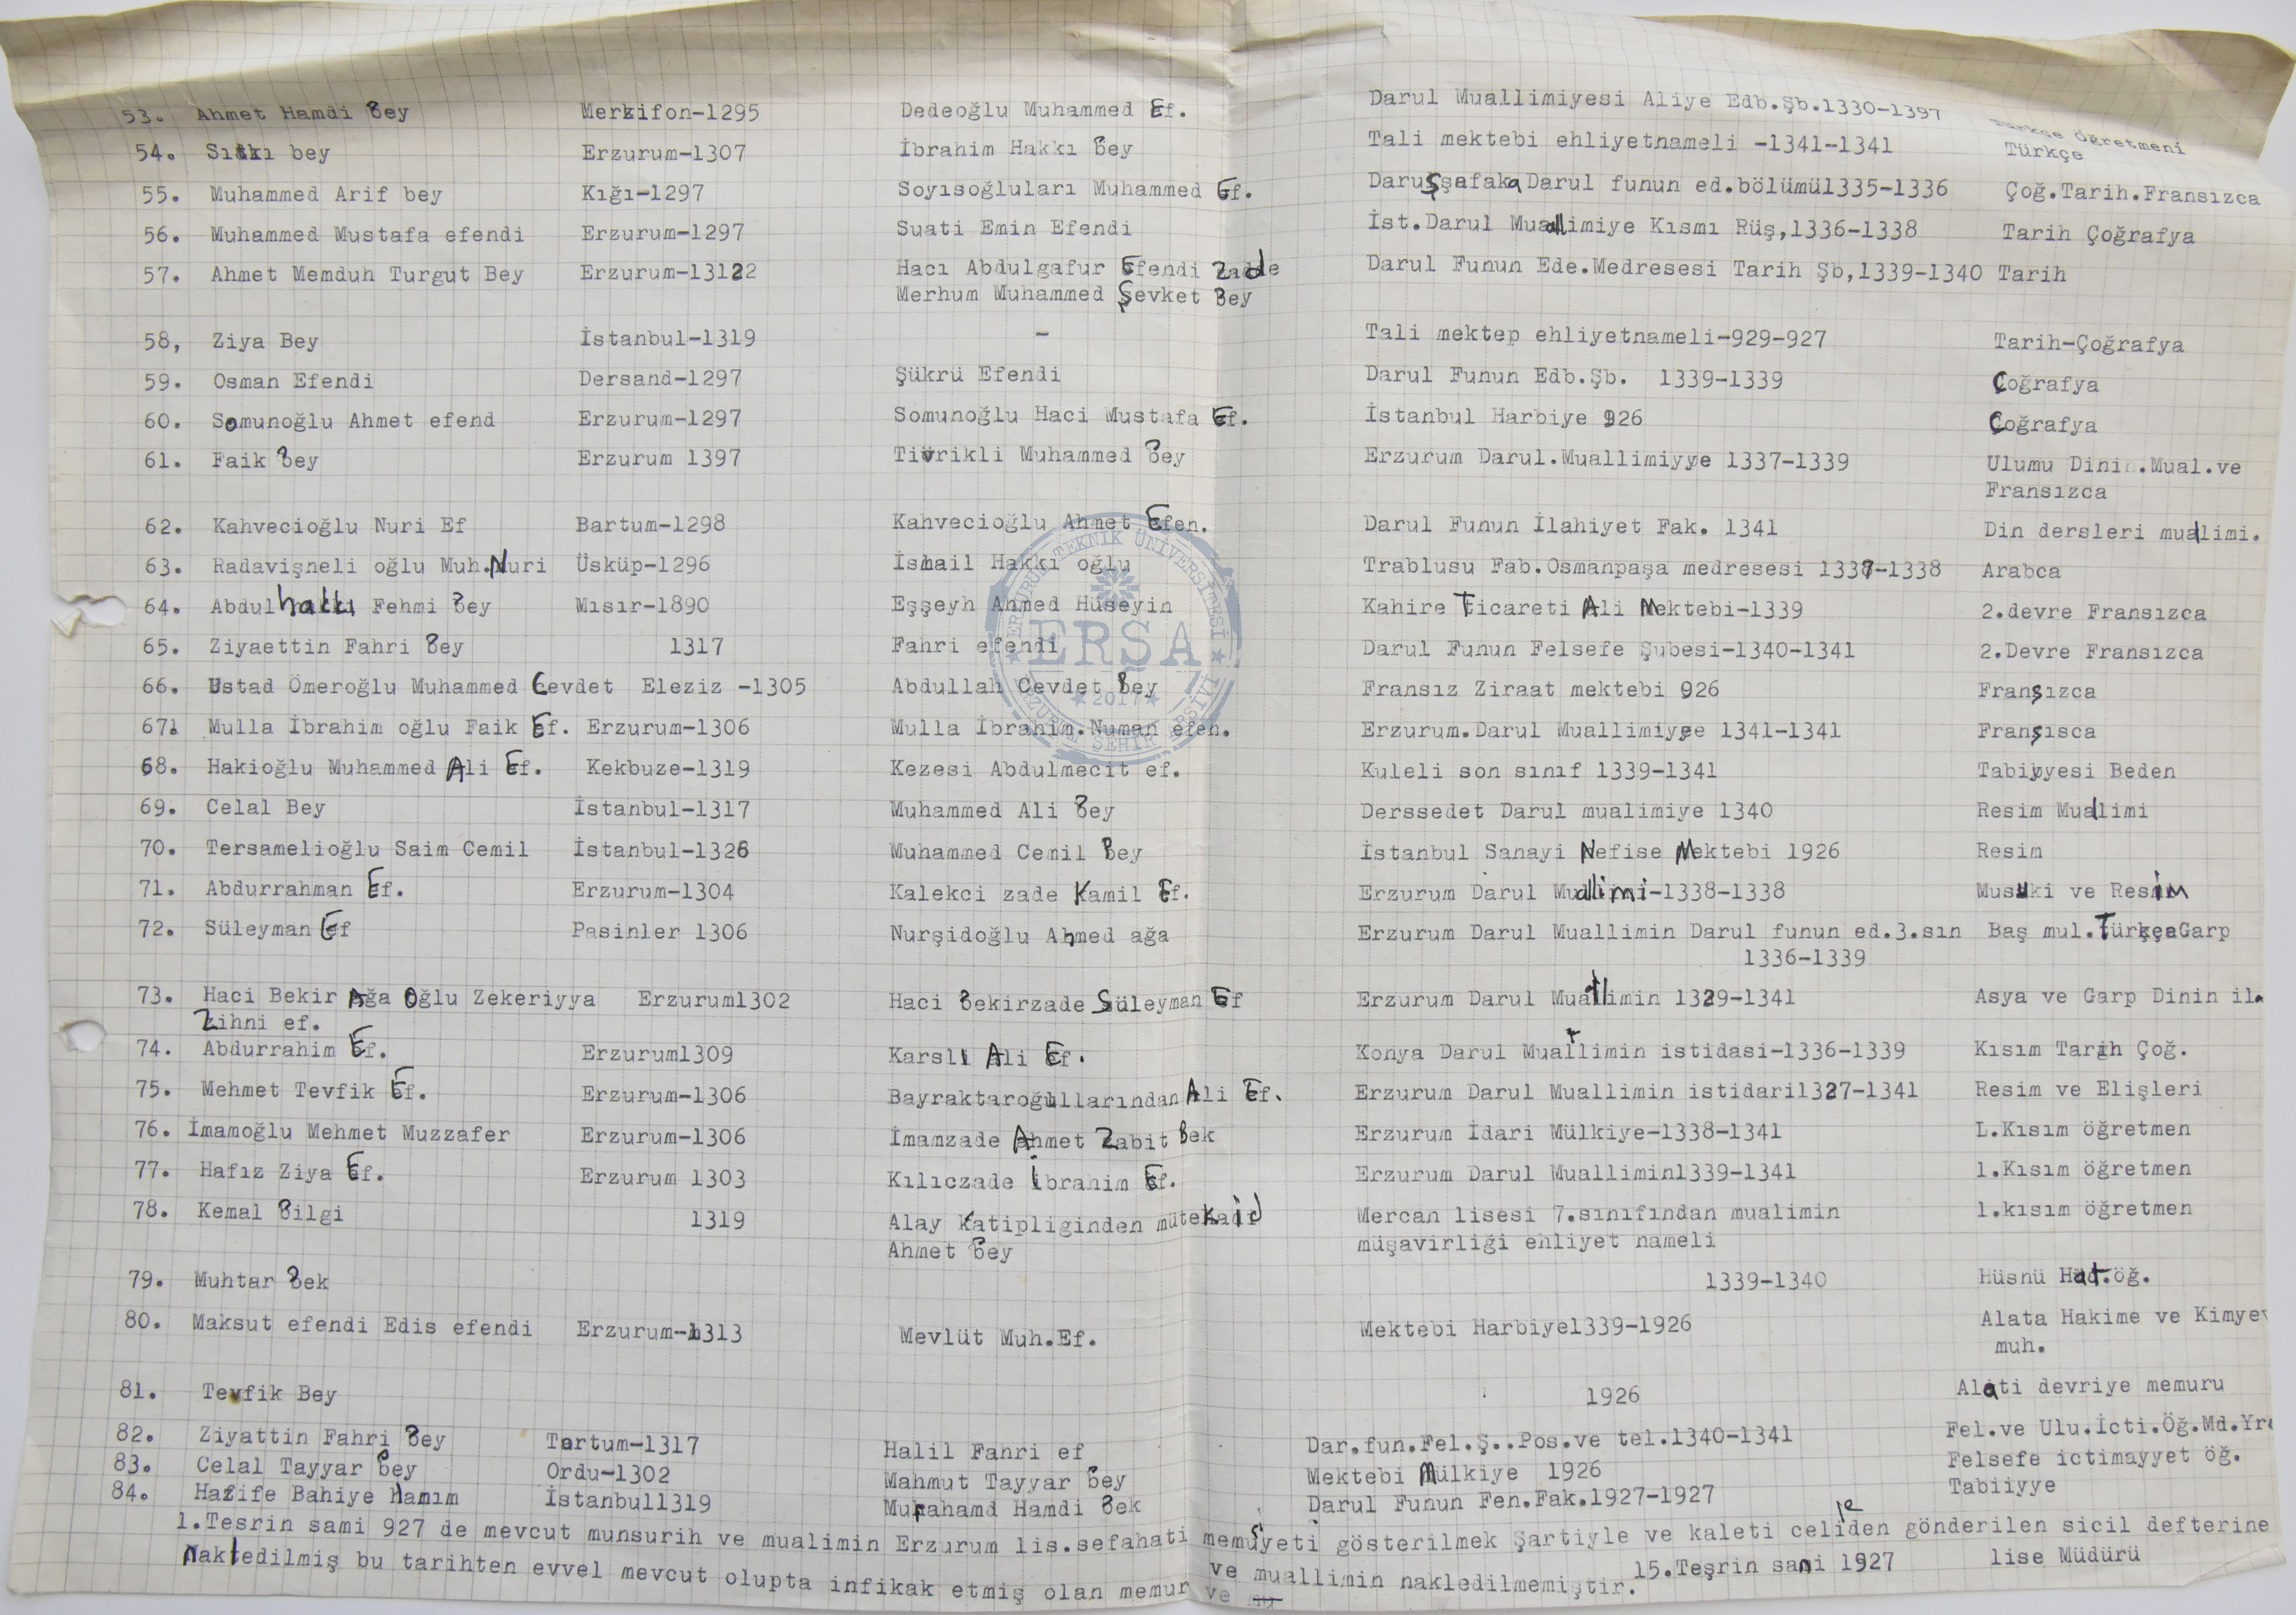 53. Ahmet Hamdi Bey Merkifon-1295 Dedeoğlu Muhammed Ef. Darul Muallimiyesi Aliye Edb.Şb.1330-1397 Türkçe Öğretmeni
54. Sıtkı bey Erzurum-1307 İbrahim Hakkı Bey Tali mektebi ehliyetnameli -1341-1341 Türkçe
55. Muhammed Arif bey Kığı-1297 Soyısoğluları Muhammed Ef. Daruşşafaka Darul funun ed.bölümü1335-1336 Çoğ.Tarih.Fransızca
56. Muhammed Mustafa efendi Erzurum-1297 Suati Emin Efendi İst.Darul Muallimiye Kısmı Rüş,1336-1338 Tarih Çoğrafya
57. Ahmet Memduh Turgut Bey Erzurum-13122 Hacı Abdulgafur Efendi Zade Darul Funun Ede.Medresesi Tarih Şb,1339-1340 Tarih
Merhum Muhammed Şevket Bey
58, Ziya Bey İstanbul-1319 - Tali mektep ehliyetnameli-929-927 Tarih-Çoğrafya
59. Osman Efendi Dersand-1297 Şükrü Efendi Darul Funun Edb.Şb. 1339-1339 Çoğrafya
60. Somunoğlu Ahmet efend Erzurum-1297 Somunoğlu Haci Mustafa Ef. İstanbul Harbiye 926 Çoğrafya
61. Faik Bey Erzurum 1397 Tivrikli Muhammed Bey Erzurum Darul.Muallimiyye 1337-1339 Ulumu Dinin.Mual.ve
Fransızca
62. Kahvecioğlu Nuri Ef Bartum-1298 Kahvecioğlu Ahmet Efen. Darul Funun İlahiyet Fak. 1341 Din dersleri mualimi.
63. Radavişneli oğlu Muh.Nuri Üsküp-1296 İsmail Hakkı oğlu Trablusu Fab.Osmanpaşa medresesi 1337-1338 Arabca
64. Abdulhakkı Fehmi Bey Mısır-1890 Eşşeyh Ahmed Hüseyin Kahire Ticareti Ali Mektebi-1339 2.devre Fransızca
65. Ziyaettin Fahri Bey 1317 Fahri efendi Darul Funun Felsefe Şubesi-1340-1341 2.Devre Fransızca
66. Ustad Ömeroğlu Muhammed Cevdet Eleziz -1305 Abdullah Cevdet Bey Fransız Ziraat mektebi 926 Franşızca
67. Mulla İbrahim oğlu Faik Ef. Erzurum-1306 Mulla İbrahim.Numan efen. Erzurum.Darul Muallimiyye 1341-1341 Franşısca
68. Hakioğlu Muhammed Ali Ef. Kekbuze-1319 Kezesi Abdulmecit ef. Kuleli son sınıf 1339-1341 Tabiyyesi Beden
69. Celal Bey İstanbul-1317 Muhammed Ali Bey Derssedet Darul mualimiye 1340 Resim Mualimi
70. Tersamelioğlu Saim Cemil İstanbul-1326 Muhammed Cemil Bey İstanbul Sanayi Nefise Mektebi 1926 Resim
71. Abdurrahman Ef. Erzurum-1304 Kalekci zade Kamil Ef. Erzurum Darul Muallimi-1338-1338 Musuki ve Resim
72. Süleyman Ef Pasinler 1306 Nurşidoğlu Ahmed ağa Erzurum Darul Muallimin Darul funun ed.3.sın Baş mul.TürkçeGarp
1336-1339
73. Haci Bekir Ağa Oğlu Zekeriyya Erzurum1302 Haci Bekirzade Süleyman Ef Erzurum Darul Muallimin 1329-1341 Asya ve Garp Dinin ila
Zihni ef.
74. Abdurrahim Ef. Erzurum1309 Karslı Ali Ef. Konya Darul Muallimin istidasi-1336-1339 Kısım Tarih Çoğ.
75. Mehmet Tevfik Ef. Erzurum-1306 Bayraktaroğullarından Ali Ef. Erzurum Darul Muallimin istidari1327-1341 Resim ve Elişleri
76. İmamoğlu Mehmet Muzzafer Erzurum-1306 İmamzade Ahmet Zabit Bek Erzurum İdari Mülkiye-1338-1341 L.Kısım öğretmen
77. Hafız Ziya Ef. Erzurum 1303 Kılıczade İbrahim Ef. Erzurum Darul Muallimin1339-1341 1.Kısım öğretmen
78. Kemal Bilgi 1319 Alay katipliginden mütekaid Mercan lisesi 7.sınıfından mualimin 1.kısım öğretmen
Ahmet Bey müşavirliği ehliyet nameli
79. Muhtar Bek 1339-1340 Hüsnü Hat.öğ.
80. Maksut efendi Edis efendi Erzurum-1313 Mevlüt Muh.Ef. Mektebi Harbiye1339-1926 Alata Hakime ve Kimyev
muh.
81. Tevfik Bey 1926 Alati devriye memuru
82. Ziyattin Fahri Bey Tortum-1317 Halil Fahri ef Dar.fun.Fel.Ş..Pos.ve tel.1340-1341 Fel.ve Ulu.İcti.Öğ.Md.Yrd
83. Celal Tayyar Bey Ordu-1302 Mahmut Tayyar Bey Mektebi Mülkiye 1926 Felsefe ictimayyet öğ.
84. Hafife Bahiye Hanım İstanbul1319 Muhahamd Hamdi Bek Darul Funun Fen.Fak.1927-1927 Tabiiyye
1.Tesrin sami 927 de mevcut munsurih ve mualimin Erzurum lis.sefahati memuşiyeti gösterilmek Şartiyle ve kaleti celileden gönderilen sicil defterine
Naktedilmiş bu tarihten evvel mevcut olupta infikak etmiş olan memur ve muallimin nakledilmemiştir. 15.Teşrin sani 1927 lise Müdürü
ERZURUM TEKNİK ÜNİVERSİTESİ
ERŞA
2017
ERZURUM ŞEHİR ARŞİVİ